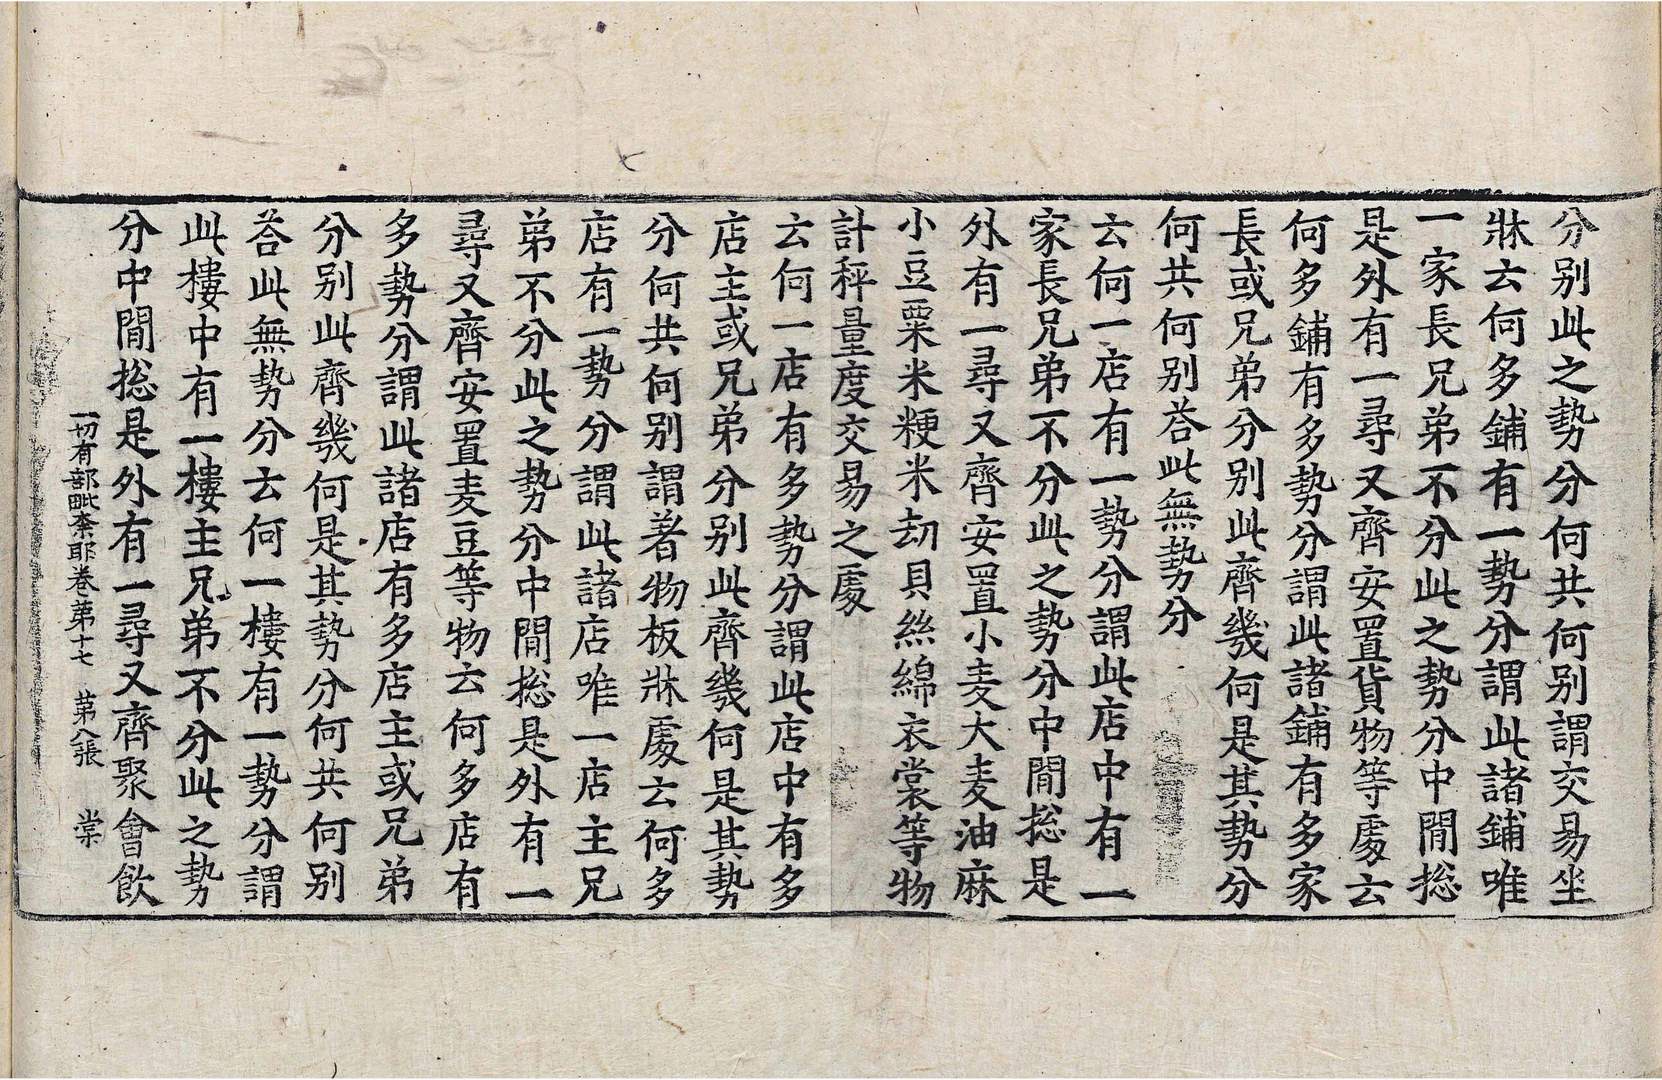 分别此之勢分何共何别謂交易坐
牀云何多鋪有一勢分謂此諸鋪唯
一家長兄弟不分此之勢分中間揔
是外有一尋又齊安置貨物等處云
何多鋪有多勢分謂此諸鋪有多家
長或兄弟分别此齊幾何是其勢分
何共何别荅此無勢分
云何一店有一勢分謂此店中有一
家長兄弟不分此之勢分中間揔是
外有一尋又齊安置小麦大麦油麻
小豆粟米粳米刧貝絲綿衣裳等物
計秤量度交易之處
云何一店有多勢分謂此店中有多
店主或兄弟分别此齊幾何是其勢
分何共何别謂著物板牀處云何多
店有一勢分謂此諸店唯一店主兄
弟不分此之勢分中間揔是外有一
尋又齊安置麦豆等物云何多店有
多勢分謂此諸店有多店主或兄弟
分别此齊幾何是其勢分何共何别
荅此無勢分云何一樓有一勢分謂
此樓中有一樓主兄弟不分此之勢
分中間揔是外有一尋又齊聚會飲
一切有部毗奈耶卷第十七　第八張　棠